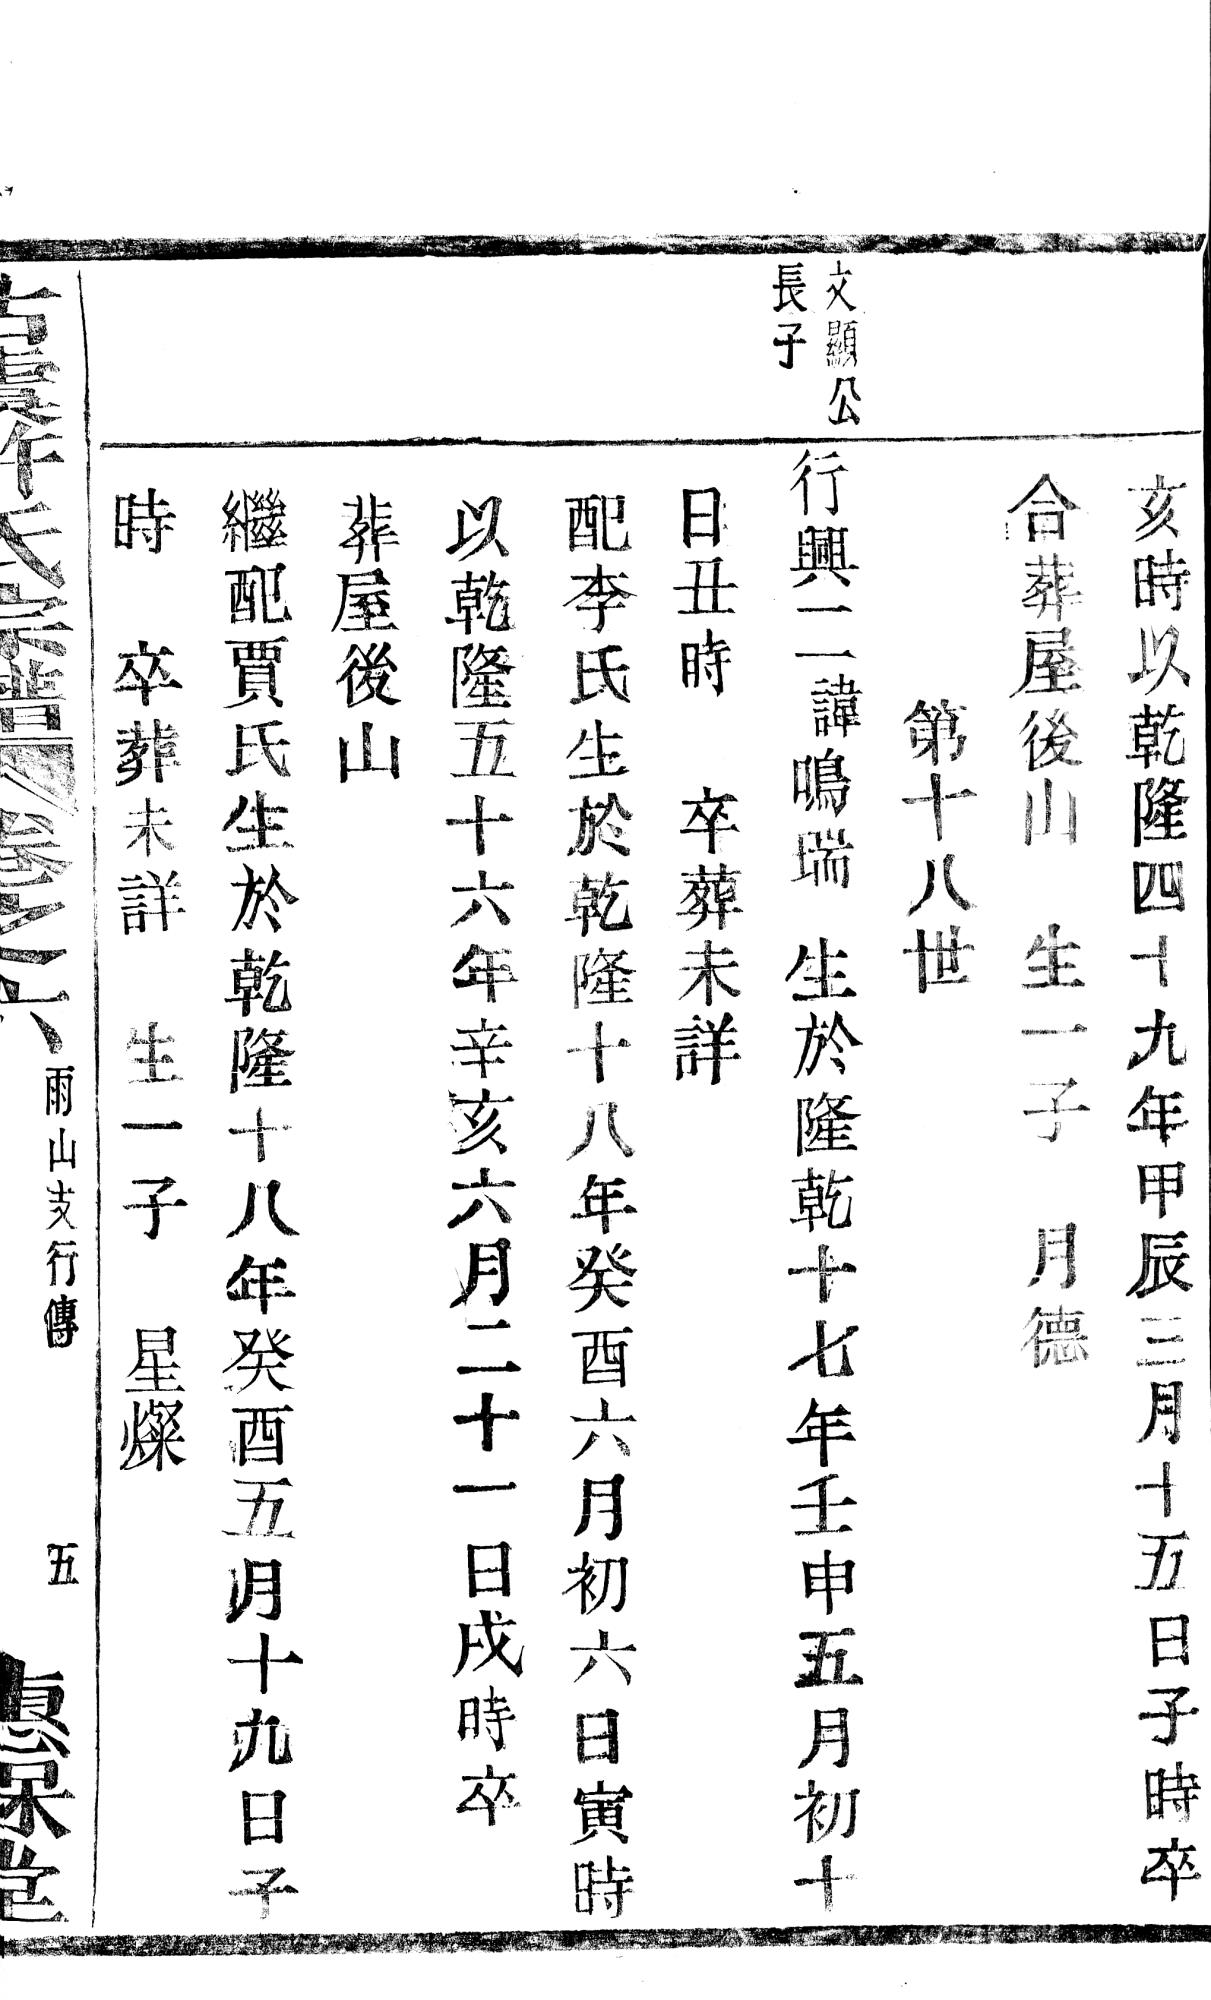 亥時以乾隆四十九年甲辰三月十五日子時卒
合葬屋後山　生一子　月德
第十八世
文顯公
長子
行興二一諱鳴瑞　生於隆乾十七年壬申五月初十
日丑時　卒葬未詳
配李氏生於乾隆十八年癸酉六月初六日寅時
以乾隆五十六年辛亥六月二十一日戌時卒
葬屋後山
繼配賈氏生於乾隆十八年癸酉五月十九日子
時　卒葬未詳　生一子　星燦
氏宗譜　卷之六　雨山支行傳　五